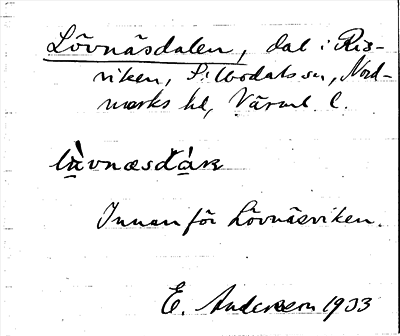 Lövnäsdalen, dal i Ris-
viken, Silbodals sn, Nord-
marks hd, Värml. l.
Innanför Lövnäsviken.
E. Anderson 1933